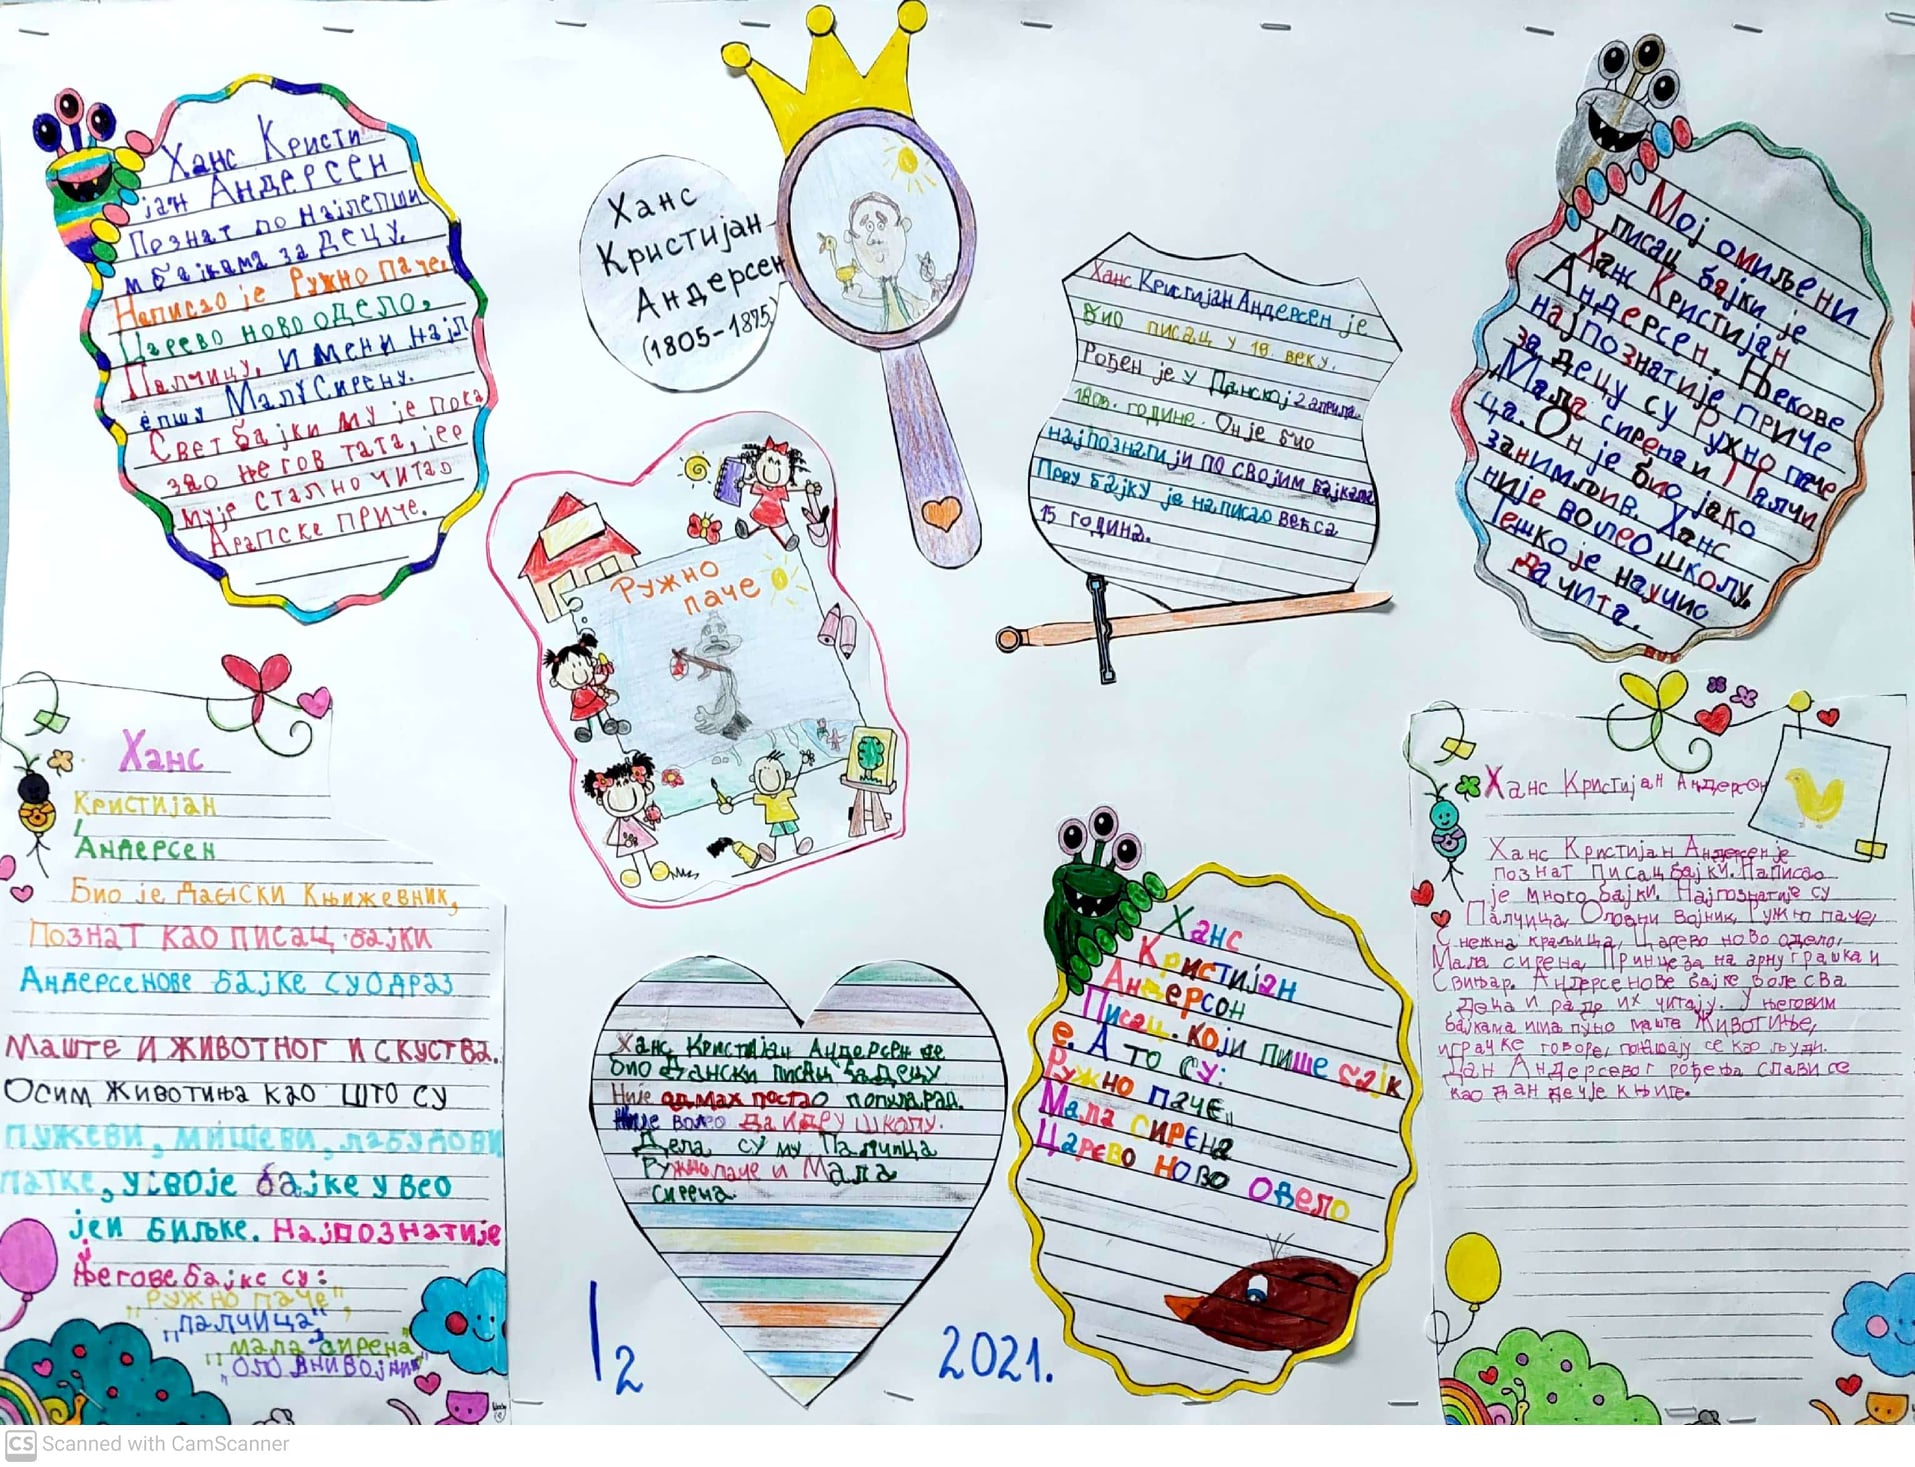 Ханс Кристи
јан Андерсен
Познат по најлепши
м бајкама за децу.
Написао је Ружно паче,
Царево ново одело,
Палчицу, и мени најл
епшу Малу Сирену.
Свет бајки му је пока
зао његов тата, јер
му је стално читао
Арапске приче.
Ханс
Кристијан
Андерсен
(1805-1875)
Ханс Кристијан Андерсен је
био писац у 18. веку.
Рођен је у Данској 2 априла.
1805. године. Он је био
најпознатији по својим бајкама
Прву бајку је написао већ са
15 година.
Мој омиљени
писац бајки је
Ханс Кристијан
Андерсен. Његове
најпознатије приче
за децу су Ружно паче
Мала сирена и Палчи
ца. Он је био јако
занимљив. Ханс
није волео школу.
Тешко је научио
да чита.
Ружно
паче
Ханс
Кристијан
Андерсен
Био је Дански Књижевник,
Познат као писац бајки
Андерсенове бајке су одраз
маште и животног искуства.
Осим животиња као што су
пужеви, мишеви, лабудови
патке, у своје бајке увео
је и биљке. Најпознатије
његове бајке су:
"Ружно паче",
"Палчица",
"мала сирена"
"оловни војник"
Ханс Кристијан Андерсен је
био Дански писац за децу
Није одмах постао популаран.
Није волео да иде у школу.
Дела су му Палчица
Ружно паче и Мала
сирена.
Ханс
Кристијан
Андерсон
Писац. који пише бајк
е. А то су:
Ружно паче,,
Мала сирена
Царево ново одело
Ханс Кристијан Андерсон
Ханс Кристијан Андерсен је
познат писац бајки. Написао
је много бајки. Најпознатије су
Палчица, Оловни војник, Ружно паче,
Снежна краљица, Царево ново одело,
Мала сирена, Принцеза на зрну грашка и
Свињар. Андерсенове бајке воле сва
деца и радо их читају. У његовим
бајкама има пуно маште Животиње,
играчке говоре, понашају се као људи.
Дан Андерсеног рођења слави се
као дан дечје књиге.
I2
2021.
CS Scanned with CamScanner